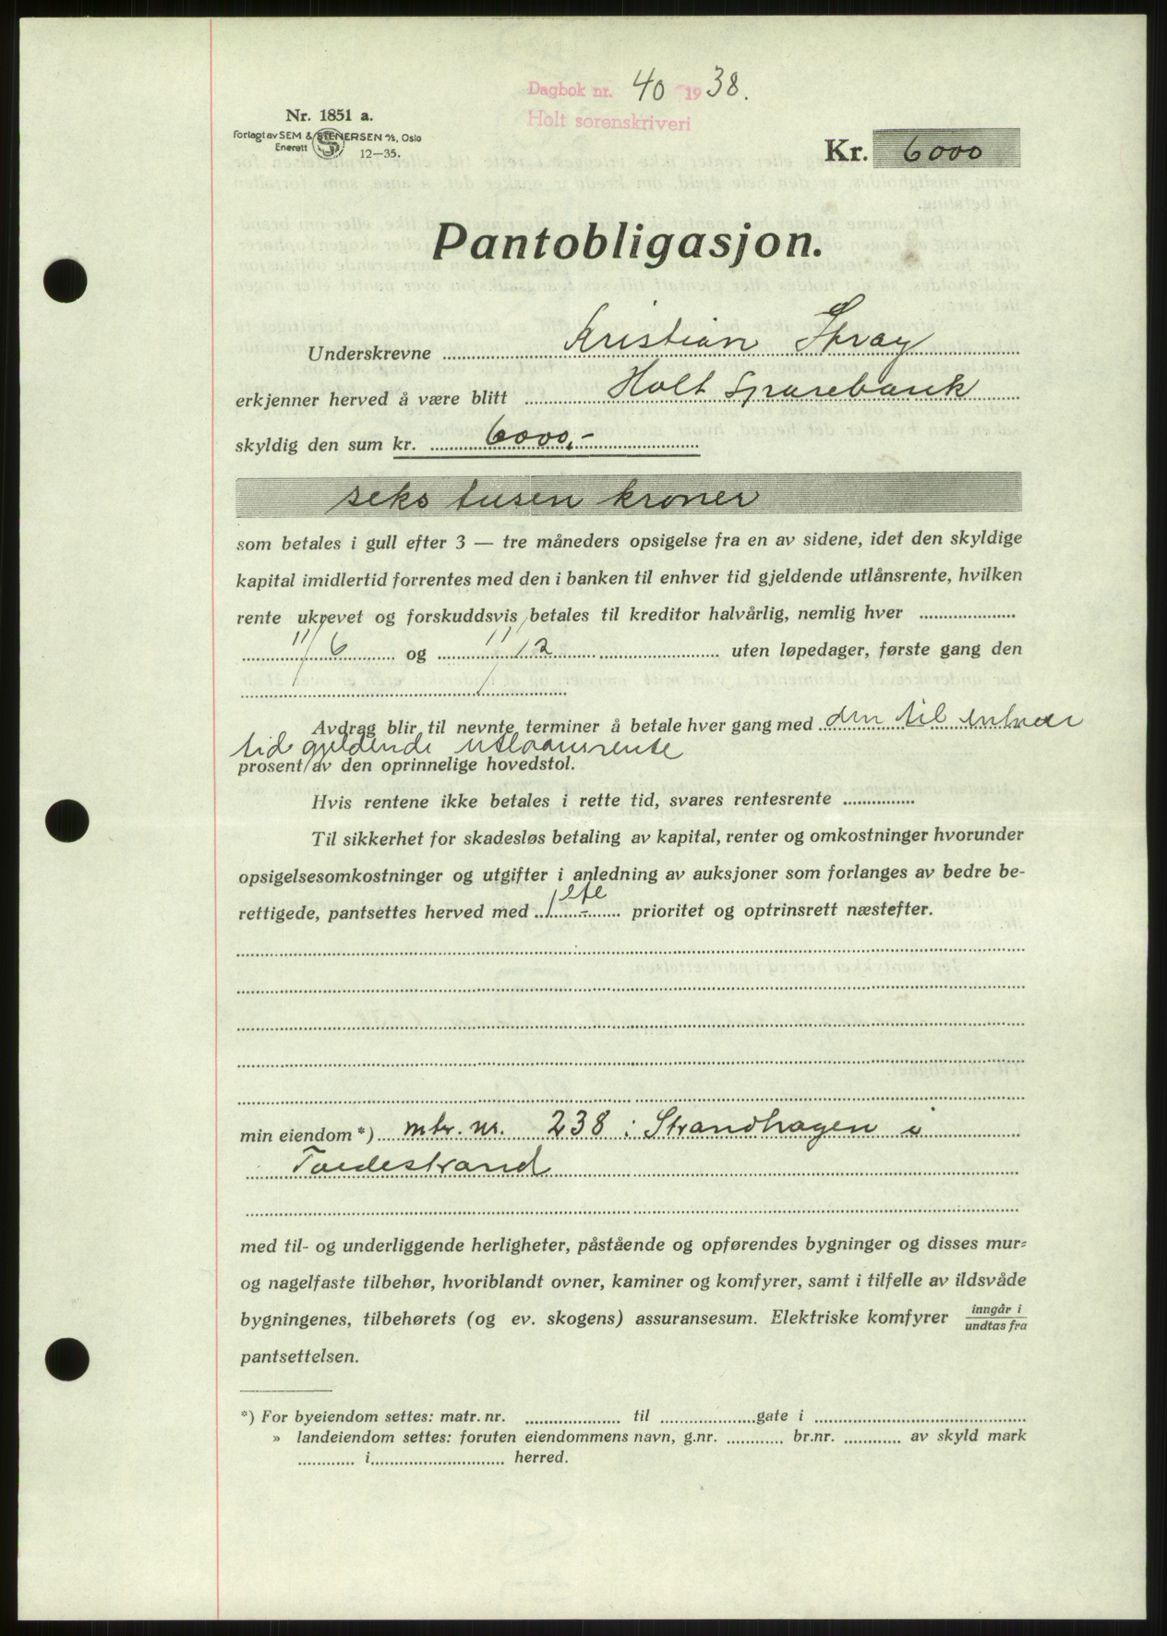 Dagbok nr. 40 1938.
Holt sorenskriveri
Nr. 1851 a.
Forlagt av SEM & STENERSEN A/S, Oslo
Enerett 12—35.
Kr. 6000
Pantobligasjon.
Underskrevne Kristian Stray
erkjenner herved å være blitt Holt Sparebank
skyldig den sum kr. 6000,-
seks tusen kroner
som betales i gull efter 3 — tre måneders opsigelse fra en av sidene, idet den skyldige
kapital imidlertid forrentes med den i banken til enhver tid gjeldende utlånsrente, hvilken
rente ukrevet og forskuddsvis betales til kreditor halvårlig, nemlig hver
11/6 og 11/12 uten løpedager, første gang den
Avdrag blir til nevnte terminer å betale hver gang med den til enhver
tid gjeldende utlaansrente
prosent av den oprinnelige hovedstol.
Hvis rentene ikke betales i rette tid, svares rentesrente
Til sikkerhet for skadesløs betaling av kapital, renter og omkostninger hvorunder
opsigelsesomkostninger og utgifter i anledning av auksjoner som forlanges av bedre be-
rettigede, pantsettes herved med 1ste prioritet og optrinsrett næstefter.
min eiendom *) mtr. nr. 238 i Strandhagen i
Tvedestrand
med til- og underliggende herligheter, påstående og opførendes bygninger og disses mur-
og nagelfaste tilbehør, hvoriblandt ovner, kaminer og komfyrer, samt i tilfelle av ildsvåde
bygningenes, tilbehørets (og ev. skogens) assuransesum. Elektriske komfyrer inngår i
undtas fra
pantsettelsen.
*) For byeiendom settes: matr. nr. til gate i
» landeiendom settes: foruten eiendommens navn, g.nr. br.nr. av skyld mark
i herred.